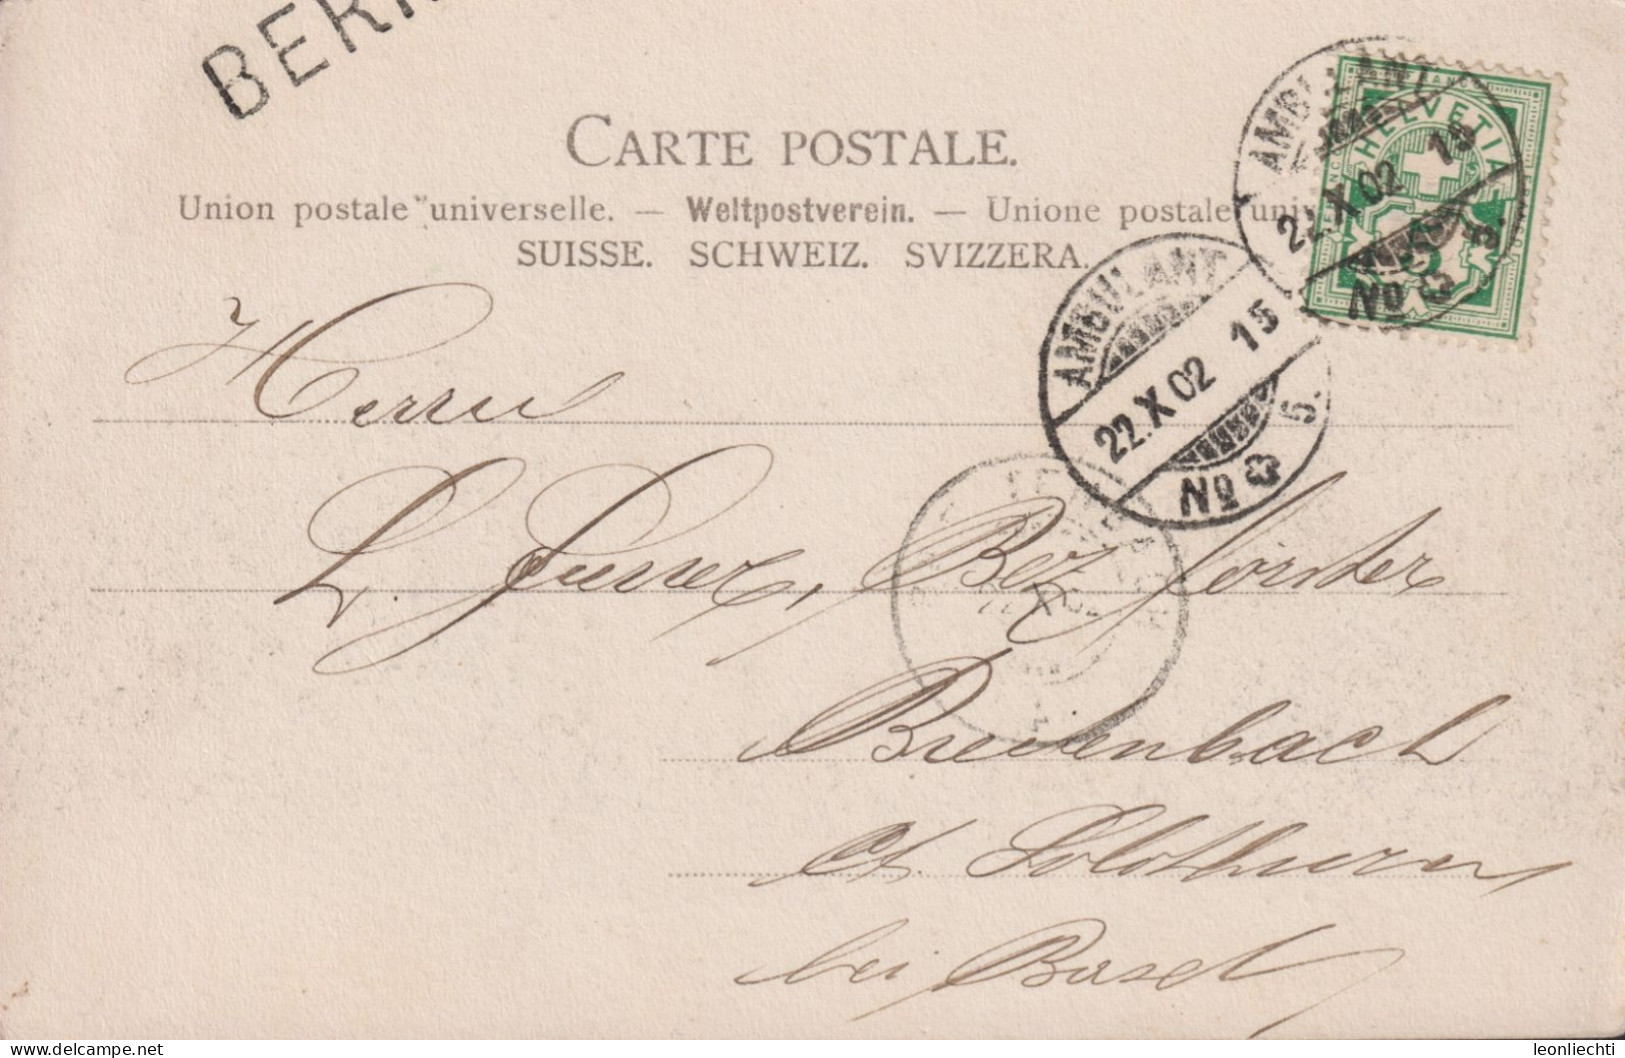 BER
CARTE POSTALE.
Union postale universelle. — Weltpostverein. — Unione postale univ
SUISSE. SCHWEIZ. SVIZZERA.
AMBULANT
22.X.02 15
No 5.
HELVETIA
5
AMBULANT
22.X.02 15
No 5.
Herrn
L. Furrer, Bez förster
Breitenbach
Ct. Solothurn
bei Basel
leonliechti